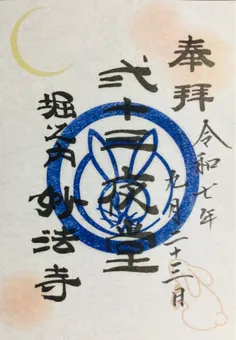 奉拝
令和七年
九月二十三日
弐十三夜堂
堀之内 妙法寺